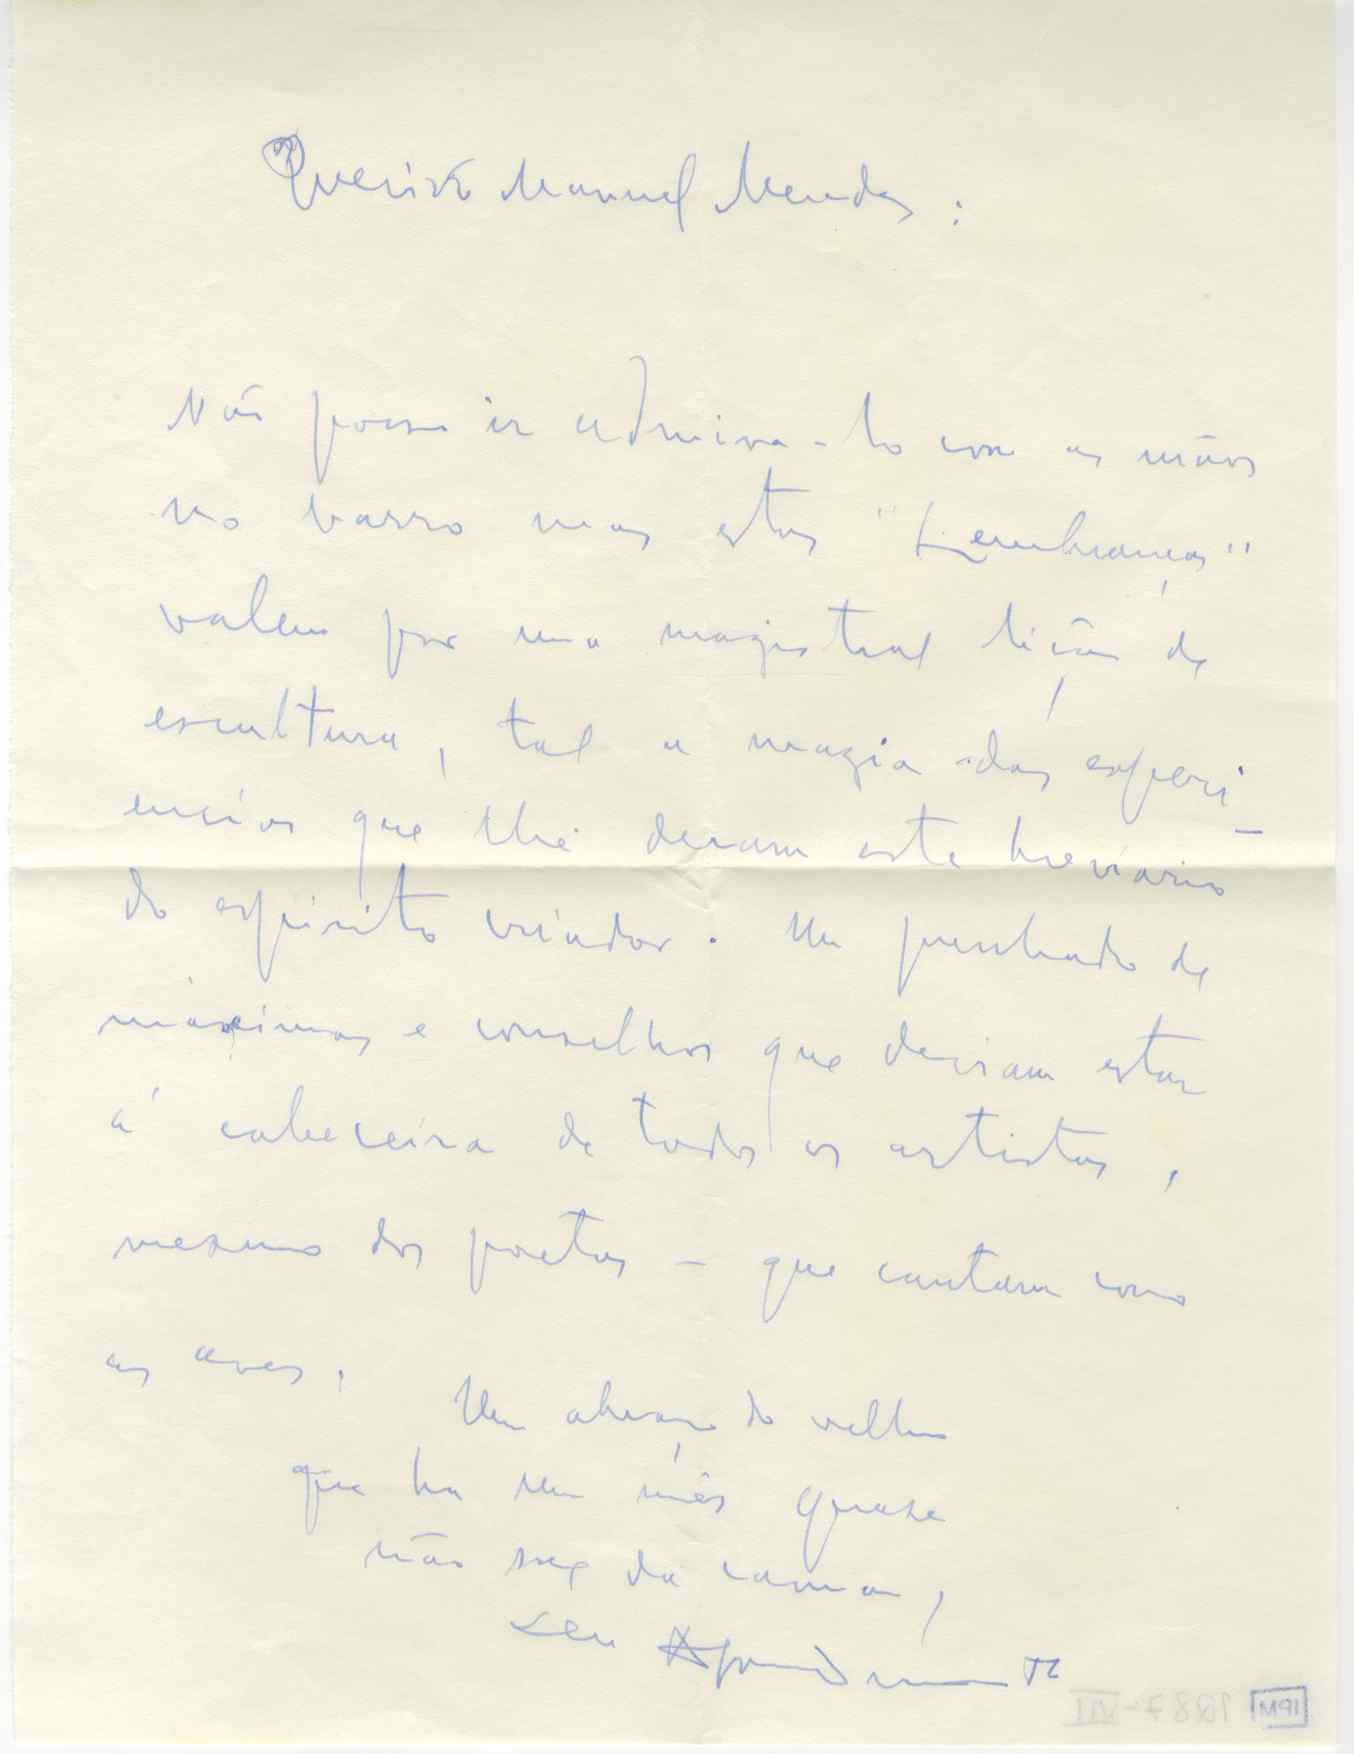 Querido Manuel Mendes:
Não posso ir admira-lo com as mãos
no barro mas estas "Lembranças"
valem por uma magistral lição de
escultura, tal a magia das experi-
encias que lhe deram este breviario
do espirito criador. Um punhado de
máximas e conselhos que deviam estar
á cabeceira de todos os artistas,
mesmo dos poetas - que cantam como
as aves.
Um abraço do velho
que ha um mês quase
não sae da cama,
seu